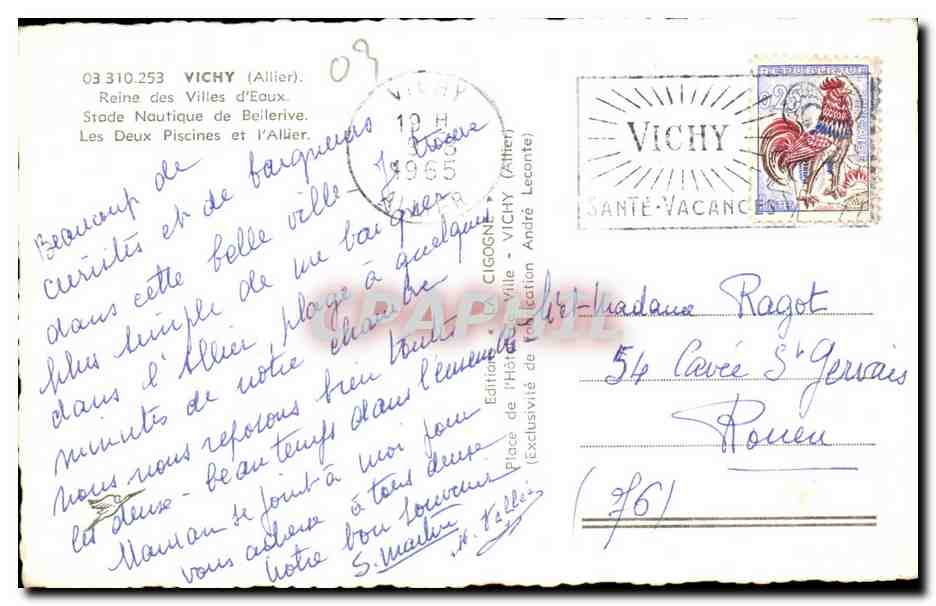 03 310.253 VICHY (Allier).
Reine des Villes d'Eaux.
Stade Nautique de Bellerive.
Les Deux Piscines et l'Allier.
03
VICHY
19 H
1965
ALLIER
VICHY
SANTÉ-VACANCES
Beaucoup de
curistes et de baigneurs
dans cette belle ville - Je trouve
plus simple de me baigner
dans l'Allier, plage à quelques
minutes de notre chambre
nous nous reposons bien toutes
les deux - beau temps dans l'ensemble
Maman se joint à moi pour
vous adresser à tous deux
notre bon souvenir
S. Martin
Edition CIGOGNE
Place de l'Hôtel de Ville - VICHY (Allier)
(Exclusivité de Fabrication André Leconte)
CPAPHIL
Mr et Madame Ragot
54 Cavée St Gervais
Rouen
(76)